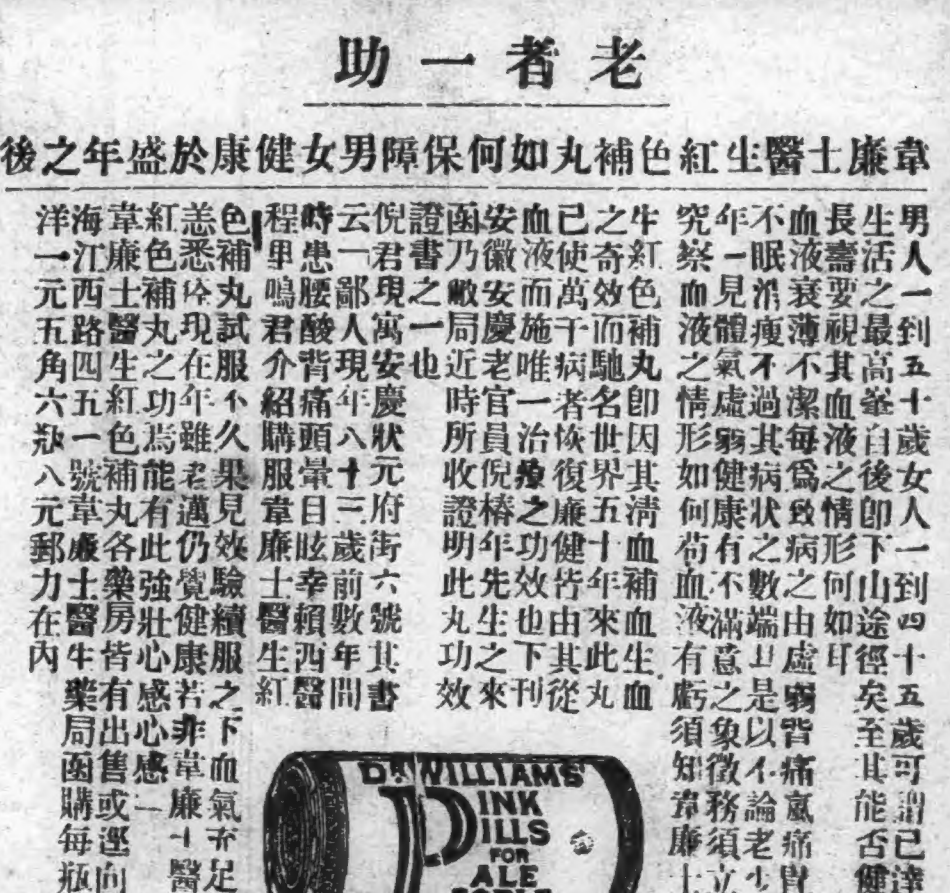 老者一助
韋廉士醫生紅色補丸如何保障男女健康於盛年之後
男人一到五十歲女人一到四十五歲可謂已達
生活之最高峯自後卽下山途徑矣至其能否健
長壽要視其血液之情形何如耳
血液衰薄不潔每爲致病之由虛弱背痛氣痛胃
不眠消瘦不過其病狀之數端是以不論老少
年一見體氣虛弱健康有不滿意之象徵務須立
究察血液之情形如何苟血液有虧須知韋廉士
生紅色補丸卽因其淸血補血生血
之奇效而馳名世界五十年來此丸
已使萬千病者恢復廉健皆由其從
血液而施唯一治療之功效也下刊
安徽安慶老官員倪椿年先生之來
函乃敝局近時所收證明此丸功效
證書之一也
倪君現寓安慶狀元府街六號其書
云「鄙人現年八十三歲前數年間
時患腰酸背痛頭暈目眩幸賴西醫
程里鳴君介紹購服韋廉士醫生紅
色補丸試服不久果見效驗續服之下血氣充足
恙悉痊現在年雖老邁仍覺健康若非韋廉士醫
紅色補丸之功焉能有此強壯心感心感
韋廉士醫生紅色補丸各藥房皆有出售或逕向
海江西路四五一號韋廉士醫生藥局函購每瓶
洋一元五角六瓶八元郵力在內
DR WILLIAMS'
PINK
PILLS
FOR
ALE